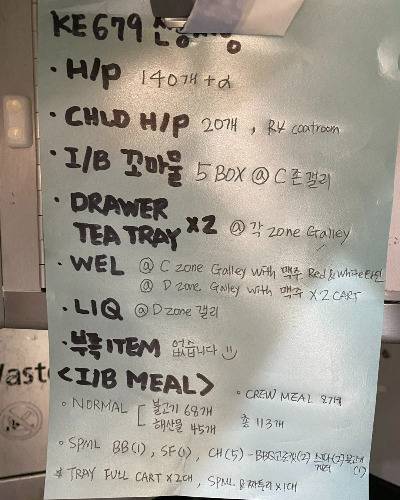 KE679
· H/P 140개 + α
· CHLD H/P 20개, R4 coatroom
· I/B 꼬마물 5 BOX @ C 존 갤리
· DRAWER
TEA TRAY X2 @ 각 zone Galley
· WEL @ C zone Galley with 맥주 Red & White
@ D zone Galley with 맥주 X 2 CART
· LIQ @ D zone 갤리
· 부족 ITEM 없습니다
<I/B MEAL>
◦ CREW MEAL
◦ NORMAL [ 불고기 68개
해산물 45개 총 113개
◦ SPML BB(1), SF(1), CH(5)
* TRAY FULL CART X 2대, SPML & 짜투리 X 1대
Waste